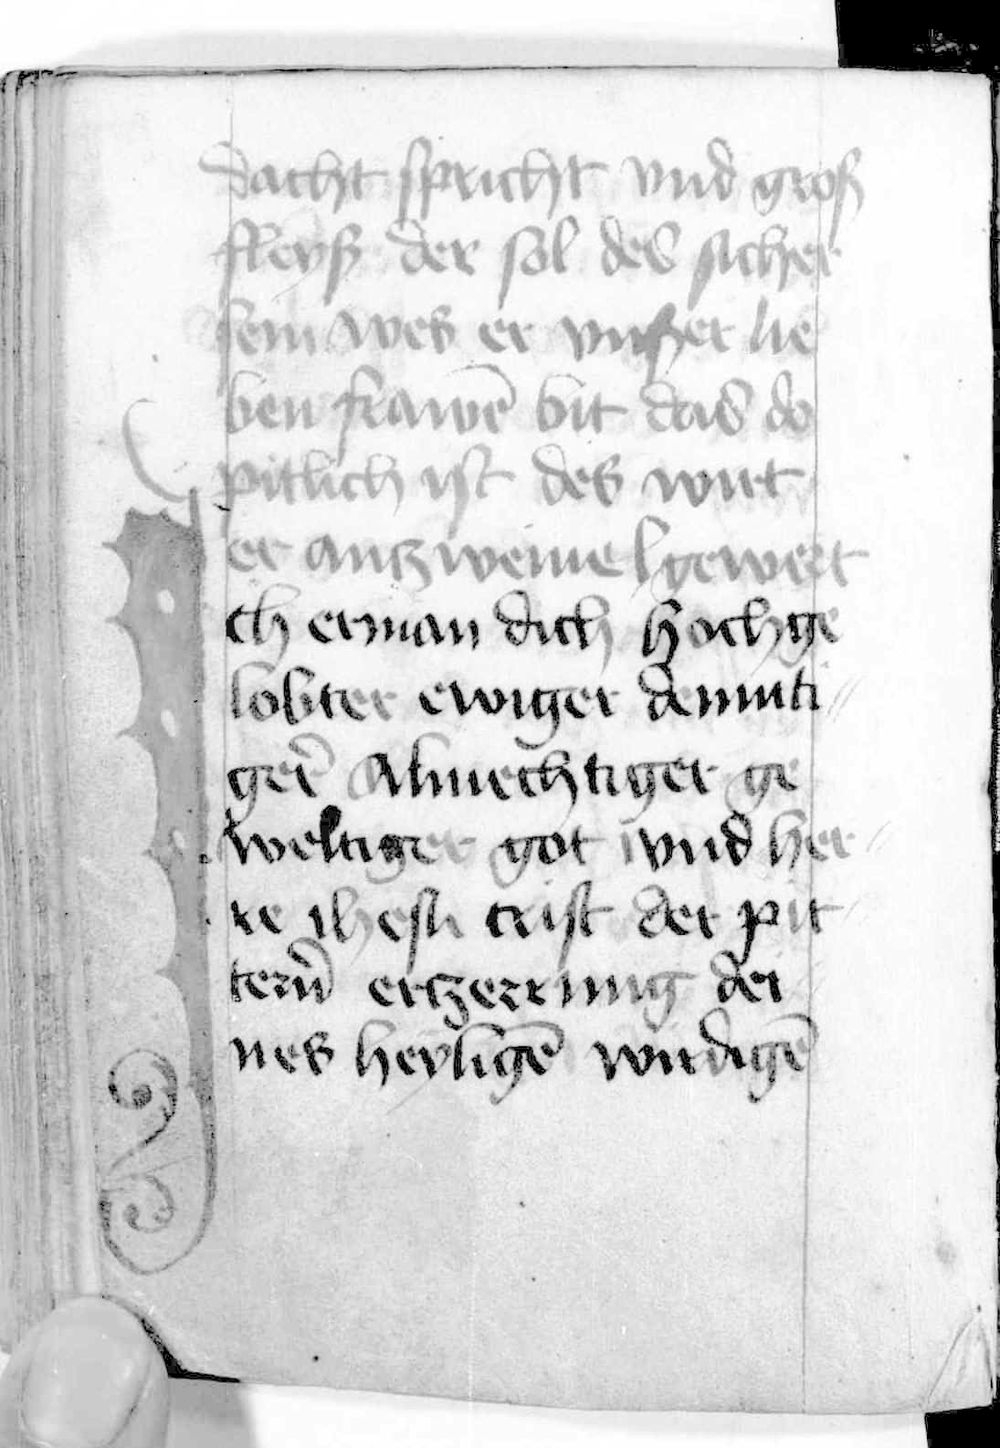 dacht spricht vnd groß
fleyß der sol des sicher
sein wes er vnßer lie
ben frawē bit das do
pitlich ist des wirt
er antzweiuel gewert
Ich erman dich hochge
lobter ewiger demuti//
ger̄ Almechtiger ge
weltiger got vnd her//
re ihesu crist der pit//
tern̄ erczerrung dei
nes heyligē wirdigē